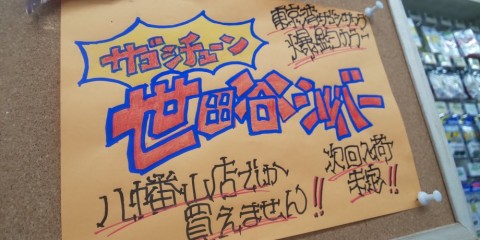 サゴシチューン
東京湾サワラ
爆釣カラー
世田谷シルバー
八幡山店でしか
買えません!!
次回入荷
未定!!